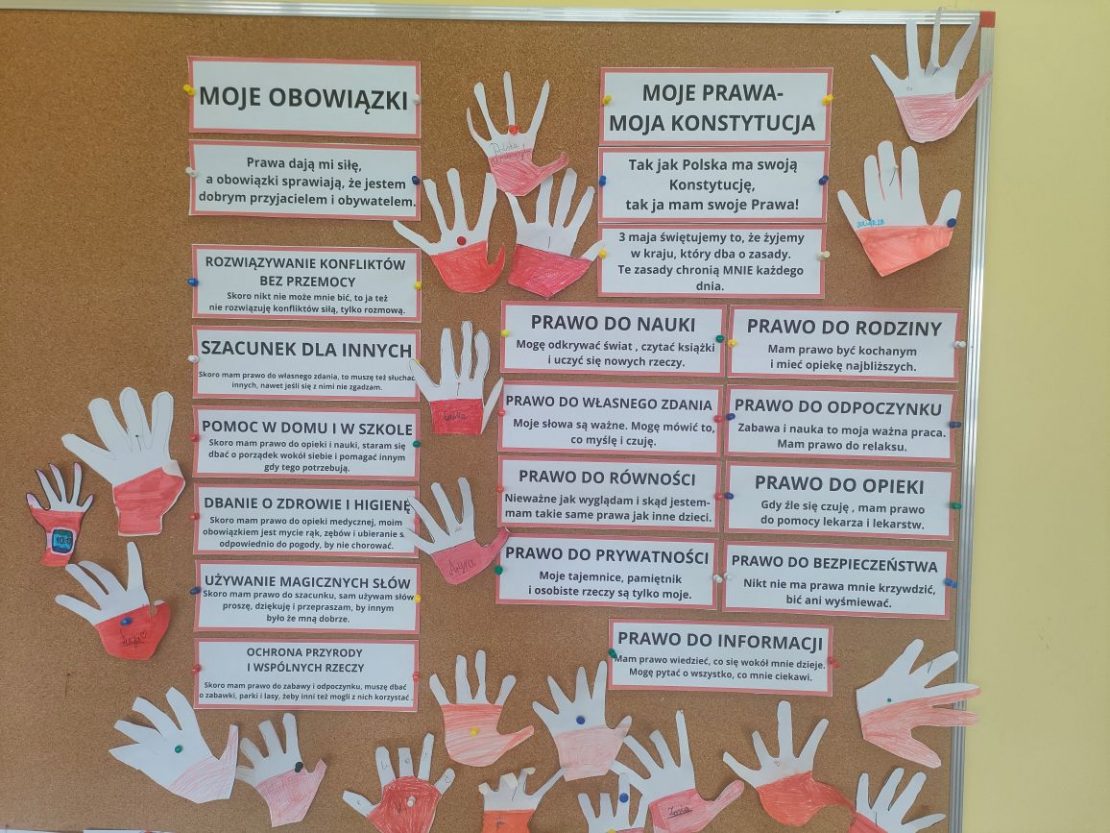 MOJE OBOWIĄZKI
Prawa dają mi siłę,
a obowiązki sprawiają, że jestem
dobrym przyjacielem i obywatelem.
ROZWIĄZYWANIE KONFLIKTÓW
BEZ PRZEMOCY
Skoro nikt nie może mnie bić, to ja też
nie rozwiązuję konfliktów siłą, tylko rozmową.
SZACUNEK DLA INNYCH
Skoro mam prawo do własnego zdania, to muszę też słuchać
innych, nawet jeśli się z nimi nie zgadzam.
POMOC W DOMU I W SZKOLE
Skoro mam prawo do opieki i nauki, staram się
dbać o porządek wokół siebie i pomagać innym
gdy tego potrzebują.
DBANIE O ZDROWIE I HIGIENĘ
Skoro mam prawo do opieki medycznej, moim
obowiązkiem jest mycie rąk, zębów i ubieranie s
odpowiednio do pogody, by nie chorować.
UŻYWANIE MAGICZNYCH SŁÓW
Skoro mam prawo do szacunku, sam używam słów
proszę, dziękuję i przepraszam, by innym
było że mną dobrze.
OCHRONA PRZYRODY
I WSPÓLNYCH RZECZY
Skoro mam prawo do zabawy i odpoczynku, muszę dbać
o zabawki, parki i lasy, żeby inni też mogli z nich korzystać .
MOJE PRAWA-
MOJA KONSTYTUCJA
Tak jak Polska ma swoją
Konstytucję,
tak ja mam swoje Prawa!
3 maja świętujemy to, że żyjemy
w kraju, który dba o zasady.
Te zasady chronią MNIE każdego
dnia.
PRAWO DO NAUKI
Mogę odkrywać świat , czytać książki
i uczyć się nowych rzeczy.
PRAWO DO RODZINY
Mam prawo być kochanym
i mieć opiekę najbliższych.
PRAWO DO WŁASNEGO ZDANIA
Moje słowa są ważne. Mogę mówić to,
co myślę i czuję.
PRAWO DO ODPOCZYNKU
Zabawa i nauka to moja ważna praca.
Mam prawo do relaksu.
PRAWO DO RÓWNOŚCI
Nieważne jak wyglądam i skąd jestem-
mam takie same prawa jak inne dzieci.
PRAWO DO OPIEKI
Gdy źle się czuję , mam prawo
do pomocy lekarza i lekarstw.
PRAWO DO PRYWATNOŚCI
Moje tajemnice, pamiętnik
i osobiste rzeczy są tylko moje.
PRAWO DO BEZPIECZEŃSTWA
Nikt nie ma prawa mnie krzywdzić,
bić ani wyśmiewać.
PRAWO DO INFORMACJI
Mam prawo wiedzieć, co się wokół mnie dzieje.
Mogę pytać o wszystko, co mnie ciekawi.